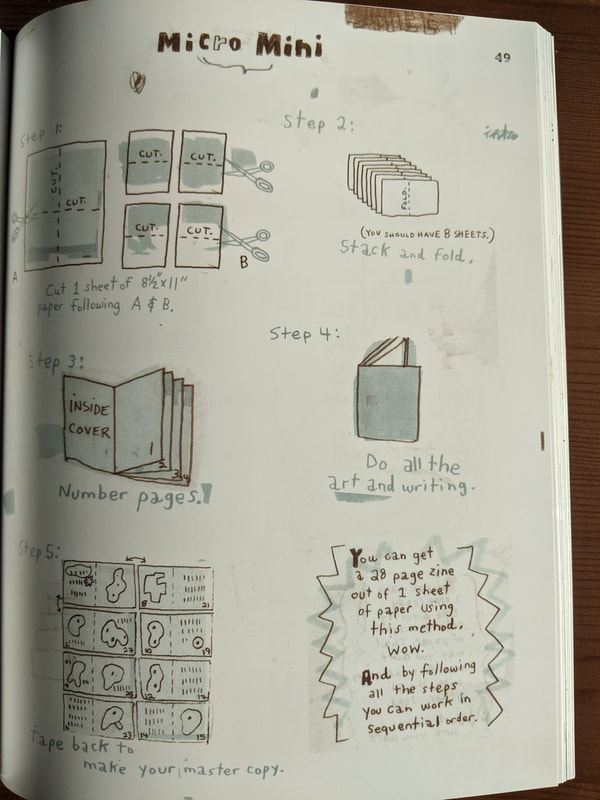 Micro Mini
49
Step 1:
CUT.
CUT.
CUT.
CUT.
CUT.
CUT.
A
B
Cut 1 sheet of 8½"x11"
paper following A & B.
Step 2:
FOLD.
(YOU SHOULD HAVE 8 SHEETS.)
Stack and fold.
Step 3:
INSIDE
COVER
1
2
3
4
Number pages.
Step 4:
Do all the
art and writing.
Step 5:
5
21
27
19
23
14
15
Tape back to
make your master copy.
You can get
a 28 page zine
out of 1 sheet
of paper using
this method.
WOW.
And by following
all the steps
you can work in
sequential order.